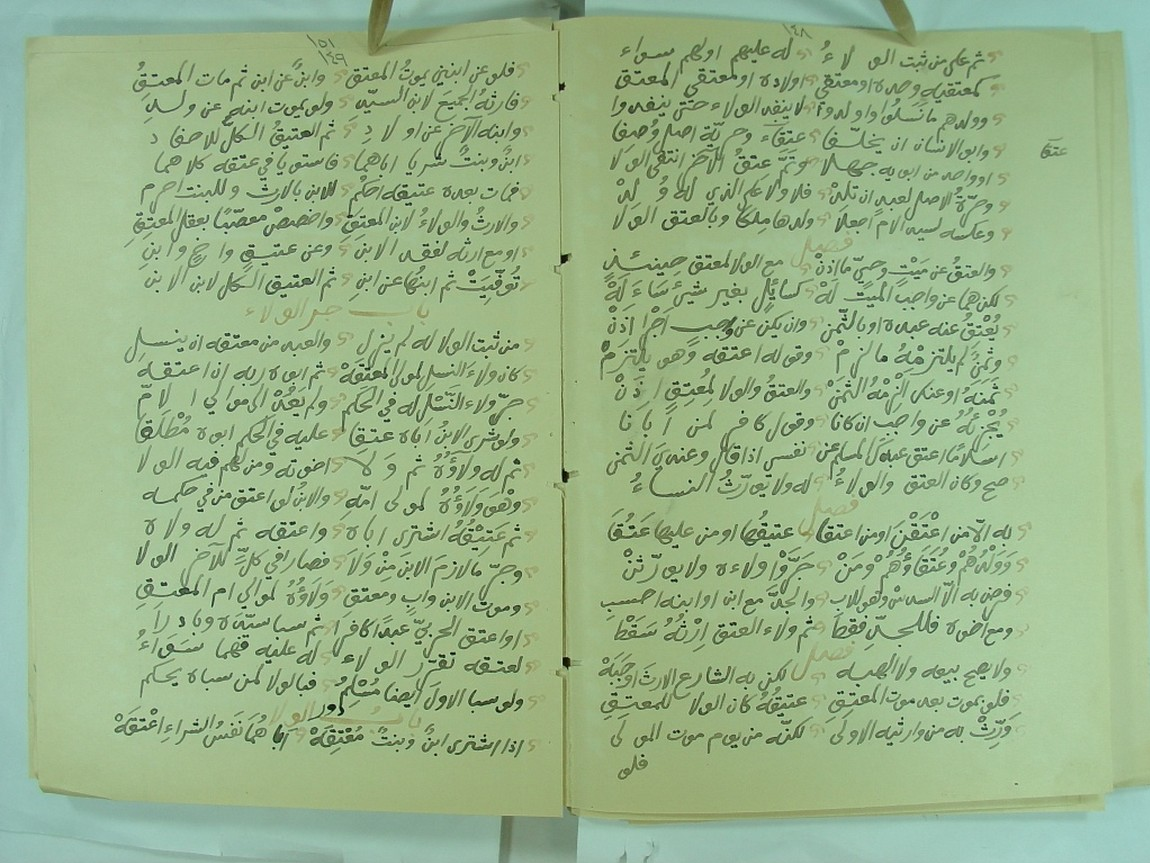 ١٤٨
ثم على من ثبت الولاءُ له عليهم اولهم سواء
كمعتقيه وحده او معتقي اولاده او معتقي المعتق
وولدهم ما نسلوا واولدوا لا ينفد الولاء حتى ينفدوا
وابو الانسان ان يخلّفا عتقاء وحريّة اصل وُصِفا
عتقا
او واحد من ابويه جهلا وتمّ عتقُ الآخر انتفى الولا
وحرّةُ الاصل لعبدٍ ان تلدْ فلا ولا على الذي له وُلدْ
وعكسه لسيد الام اجعلا ولدها مِلكًا وبالعتق الولا
فصل
والعتقُ عن ميتٍ وحيّ ما اذنْ مع الولا لمعتق حينئذٍ
لكن هما عن واجب الميت لهْ كسائلٍ بغير شيئ ساءلهْ
يُعْتِقُ عنه عبده او بالثّمن وان يكن عن واجب اجرا اذنْ
وثمنٌ لم يلتزمهُ ما لزمْ وقوله اعتقه وهو يلتزمْ
ثمنَهُ او عنك الْزِمْهُ الثمنْ والعتقُ والولا لمُعتِقٍ اذنْ
يُجْزِئُهُ عن واجب ان كانا وقول كافر لمن ابانا
اسلامًا اعتق عبدك المسلم عن نفسي اذا قال وعنده الثمن
صح وكان العتق والولاءُ له ولا تورّثُ النساءُ
فصل
له الّا من اعْتَقْنَ او من اعتقا عتيقُها او من عليها عَتُقَا
وَوَلْدُهُمْ وعُتَقَاؤُهُمْ وَمَنْ جَرَّوْا ولاءه ولا يورّثنْ
فرض به الّا السدس وهو للاب والجدّ مع ابن او ابنه احسب
ومع اخوة فللجدّ فقط ثم ولاء العتق ارثُهُ سَقَطْ
فصل
ولا يصح بيعه ولا الهبه لكن به الشارع الارث اوجبَهْ
فلو يموت بعد موت المعتِقِ عتيقُهُ كان الولا للمعتِقِ
وَرِّثْ به من وارثيه الاولى لكنّه من يوم موت المولى
فلو
١٥١
١٤٩
فلو عن ابنين يموتُ المعتق وابنٌ عن ابن ثم مات المعتَقُ
فارثهُ الجميعَ لابن السيّد ولو يموت ابنه عن ولد
وابنه الآخر عن اولاد ثم العتيقُ الكلّ للاحفاد
ابنٌ وبنتٌ شريا اباهما فاستويا في عتقه كلاهما
فمات بعده عتيقه احكم للابن بالارث وللبنت احرم
والارثُ والولاءُ لابن المعتق واخصصْ معصّبًا بعقل المعتق
او مع ارثه لفقد الابن وعن عتيقٍ واخٍ وابنِ
تُوفّيتْ ثم ابنُها عن ابنِ ثم العتيق الكل لابن الابن
باب جر الولاء
من ثبت الولا له لم يزل والعبد من معتقه ان ينسل
كان ولاءُ النسل لمولى المعتقهْ ثم ابوه ربه ان اعتقه
جرّ ولاء النَّسْل له في الحكم ولم يَعُدْ الى موالي الامّ
ولو شرى الابنُ اباه عتقا عليه في الحكم ابوه مُطْلَقا
ثم له ولاؤُهُ ثم ولا اخوته ومن لهم فيه الولا
وهْوَ وَلَاؤُهُ لمولى امّه والابنُ لو اعتق من في حكمه
ثم عَتِيْقُهُ اشترى اباه واعتقه ثم له ولاه
وجرّ ما لازم الابن مِنْ وَلَا فصارا في كلٍّ للآخر الولا
وموت الابن واب ومعتق وَلَاؤُهُ لموالي ام المعتقِ
او اعتق الحربيّ عبدًا كافرا ثم سبا سيّده وبادرا
لعتقه تقرّر الولاء له عليه فهما سَوَاءُ
ولو سبا الاولَ ايضا مُسْلِمُ فبالولا لمن سباه يحكم
باب دور الولا
اذا اشترى ابنٌ وبنتٌ مُعْتِقَهْ اباهُمَا نَفَسُ الشراءِ اعْتَقَهْ